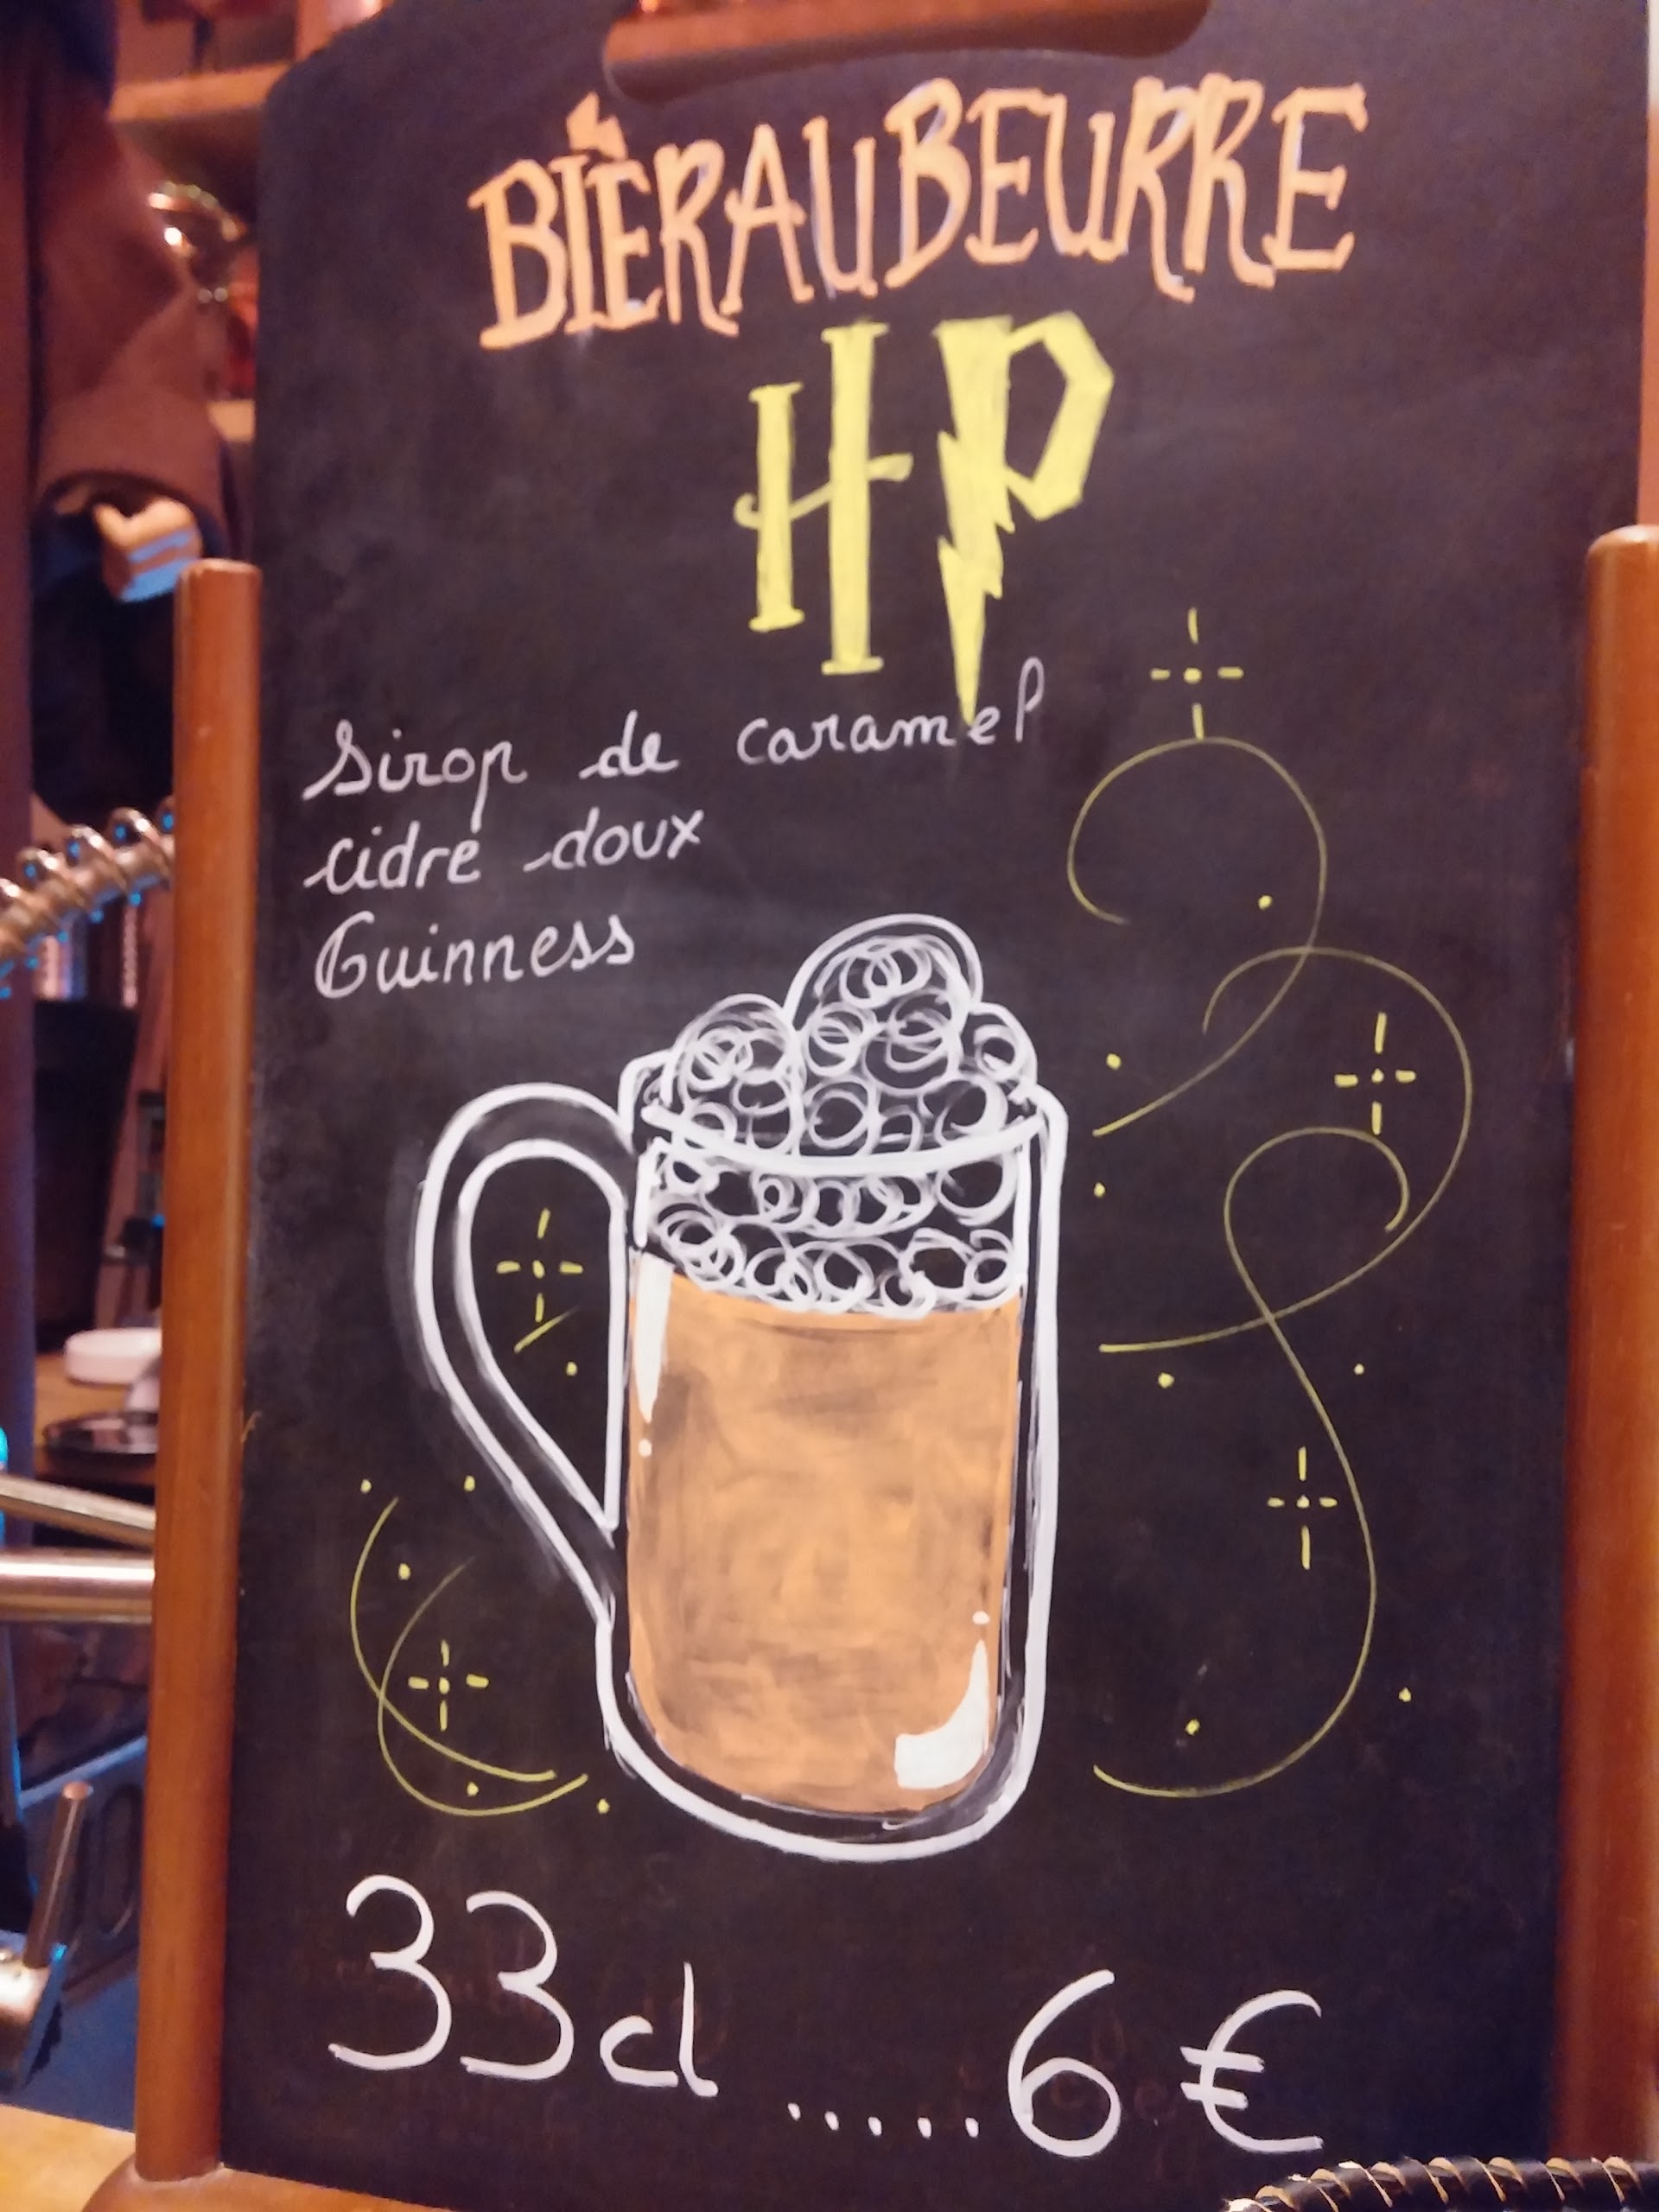 BIÈRAUBEURRE
HP
Sirop de caramel
cidre doux
Guinness
33cl .....6€